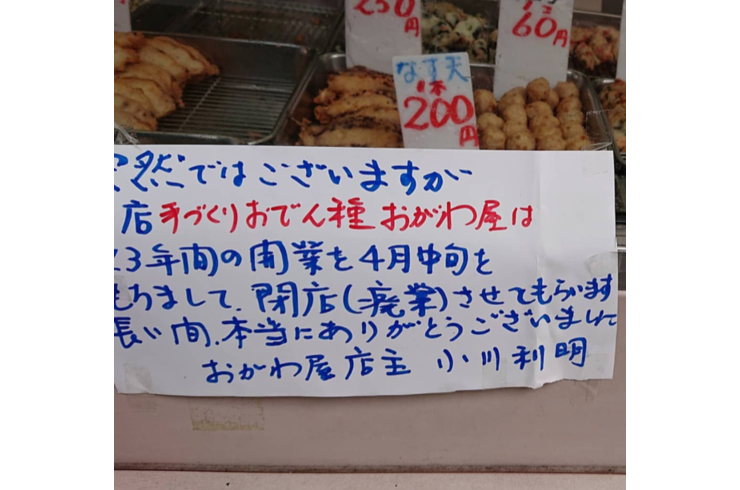 250円
60円
なす天
1本
200円
然ではございますが
店手づくりおでん種 おがわ屋は
23年間の開業を4月中旬を
もちまして、閉店(廃業)させてもらいます
長い間、本当にありがとうございました
おがわ屋店主 小川利明